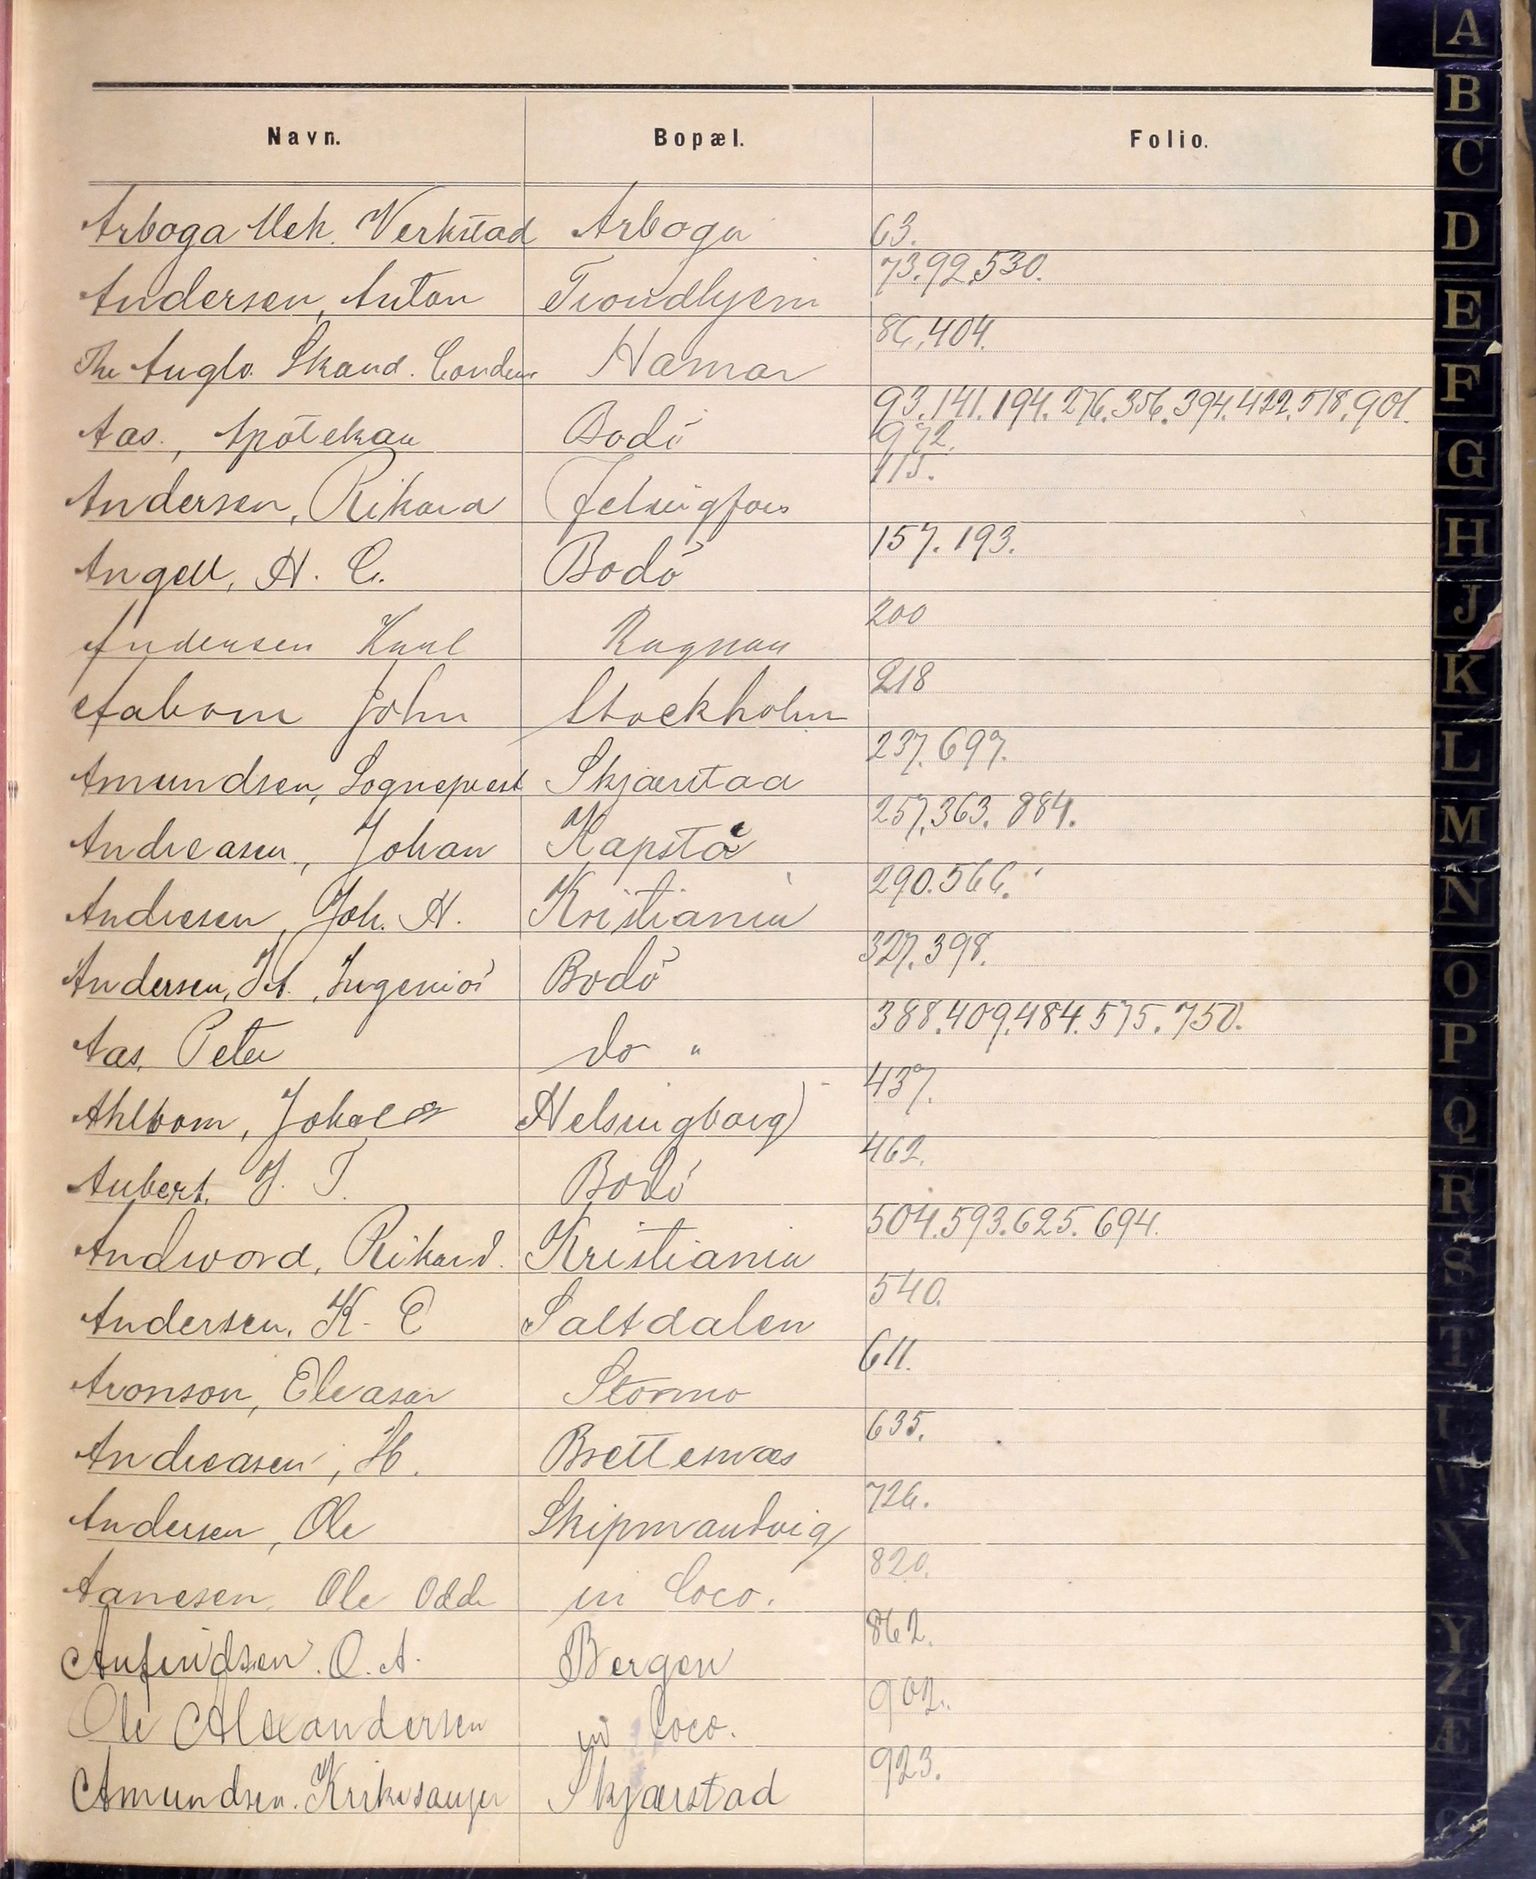 Navn. Bopæl. Folio.
Arboga Mek. Verkstad Arboga 63.
Andersen, Anton Trondhjem 73.92.530.
The Anglo. Skand. Condens Hamar 86.404.
93.141.194.276.356.394.422.518.901.
Aas, Apoteker Bodö 972.
Andersen, Rikard Helsingfors 115.
Angell, H. C. Bodö 157.193.
Andersen Karl Rognan 200
Aabom John Stockholm 218
Amundsen, Sogneprest Skjærstad 237.697.
Andreasen, Johan Kapstá 257.363.884.
Andresen, Joh. H. Kristiania 290.566.
Andersen, Ingeniör Bodö 327.398.
Aas, Peter do " 388.409.484.575.750.
Ahlbom, Helsingborg 437.
Aubert, J. T. Bodö 462.
Andvord, Rikard. Kristiania 504.593.625.694.
Andersen, K. E Saltdalen 540.
Aronson, Eleasar Stormo 611.
Andreasen, H. Brettesnæs 635.
Andersen, Ole Skipmantvig 726.
Aanesen, Ole Odd in loco. 820.
Anfindsen. O. A. Bergen 862.
Ole Alexandersen in loco. 902.
Amundsen. Kirkesanger Skjærstad 923.
A
B
C
D
E
F
G
H
J
K
L
M
N
O
P
Q
R
S
T
Y
Z
Æ